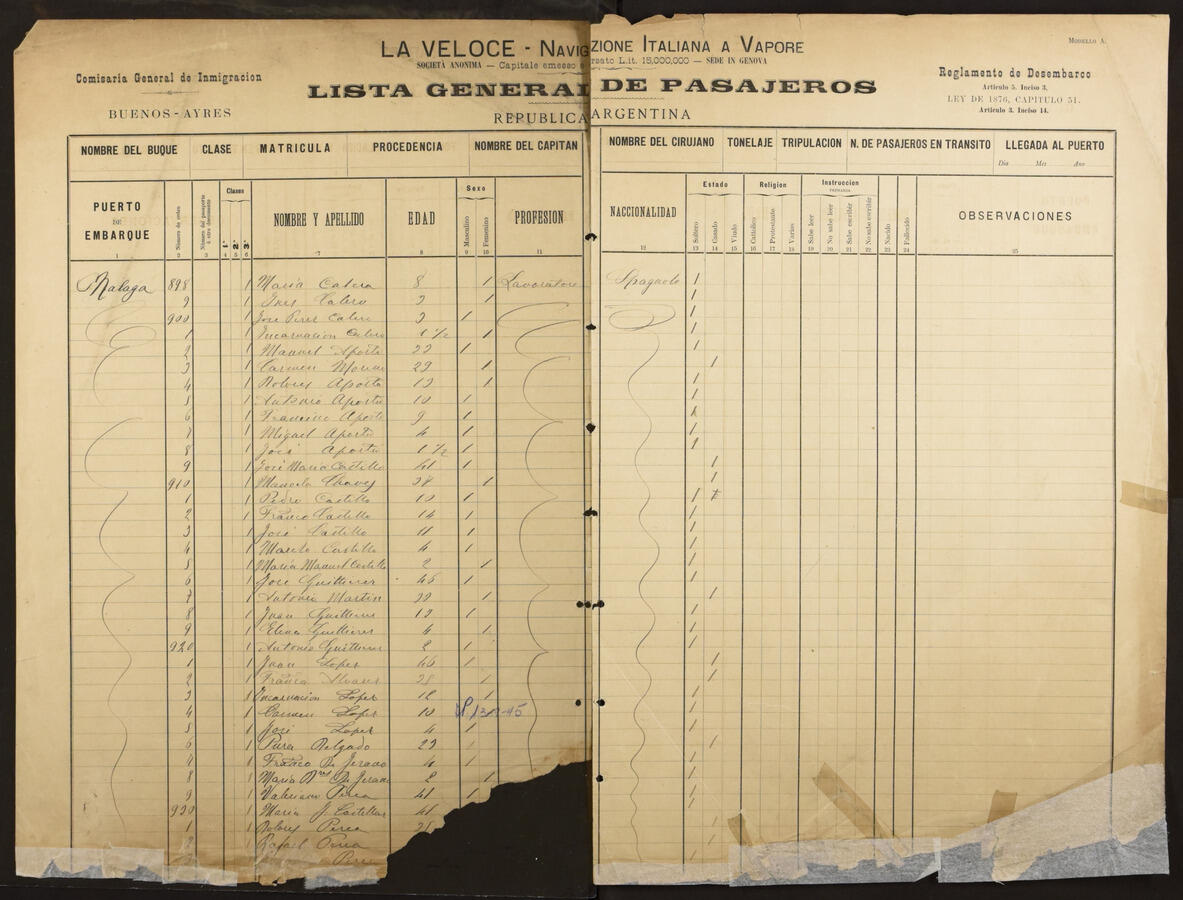 LA VELOCE - NAVIGZIONE ITALIANA A VAPORE
MODELLO A.
SOCIETÀ ANONIMA — Capitale emesso e rsato L.it. 15,000,000 — SEDE IN GENOVA
Comisaria General de Inmigracion
BUENOS-AYRES
LISTA GENERAL DE PASAJEROS
REPUBLICA ARGENTINA
Reglamento de Desembarco
Articulo 5. Inciso 3.
LEY DE 1876, CAPITULO 51.
Articulo 3. Inciso 14.
NOMBRE DEL BUQUE CLASE MATRICULA PROCEDENCIA NOMBRE DEL CAPITAN NOMBRE DEL CIRUJANO TONELAJE TRIPULACION N. DE PASAJEROS EN TRANSITO LLEGADA AL PUERTO
Dia Mes Ano
PUERTO DE EMBARQUE Número de orden Clases 1ª 2ª 3ª NOMBRE Y APELLIDO EDAD Sexo Masculino Femenino PROFESION NACCIONALIDAD Estado Soltero Casado Viudo Religion Catholico Protestante Varios Instruccion PRIMARIA Sabe leer No sabe leer Sabe escribir No sabe escribir Nacido Fallecido OBSERVACIONES
1 2 3 4 5 6 7 8 9 10 11 12 13 14 15 16 17 18 19 20 21 22 23 24 25
Malaga 898 1 Maria Calera 8 1 Lavoratore Spagnolo 1
9 1 Ines Calero 3 1 1
900 1 Jose Perez Calero 3 1 1
1 1 Incarnacion Calero 1 1/2 1 1
2 1 Manuel Aporta 33 1 1
3 1 Carmen 29 1 1
4 1 Dolores Aporta 13 1 1
5 1 Antonio Aporta 10 1 1
6 1 Francisco Aporta 9 1 1
7 1 Miguel Aporta 4 1 1
8 1 José Aporta 1 1/2 1 1
9 1 José Maria Castillo 41 1 1
910 1 Manuela Chaves 38 1 1
1 1 Pedro Castillo 10 1 1
2 1 Franco Castillo 14 1 1
3 1 José Castillo 11 1 1
4 1 Castillo 4 1 1
5 1 Maria Manuel Castillo 2 1 1
6 1 José Guittieres 45 1 1
7 1 Antonia Martin 39 1 1
8 1 Juan Guittieres 13 1 1
9 1 Elena Guittieres 4 1 1
920 1 Antonio Guittieres 2 1 1
1 1 Juan Lopez 45 1 1
2 1 Franca Alvares 38 1 1
3 1 Incarnacion Lopez 12 1 1
4 1 Carmen Lopez 10 1
5 1 José Lopez 4 1 1
6 1 Pura Delgado 29 1
7 1 Franco De Jerado 4 1 1
8 1 Maria De Jerado 2 1 1
9 1 Valeriano Perea 41 1 1
930 1 Maria J. Castillas 41
1 1 Dolores Perea
2 1 Rafael Perea
Perea